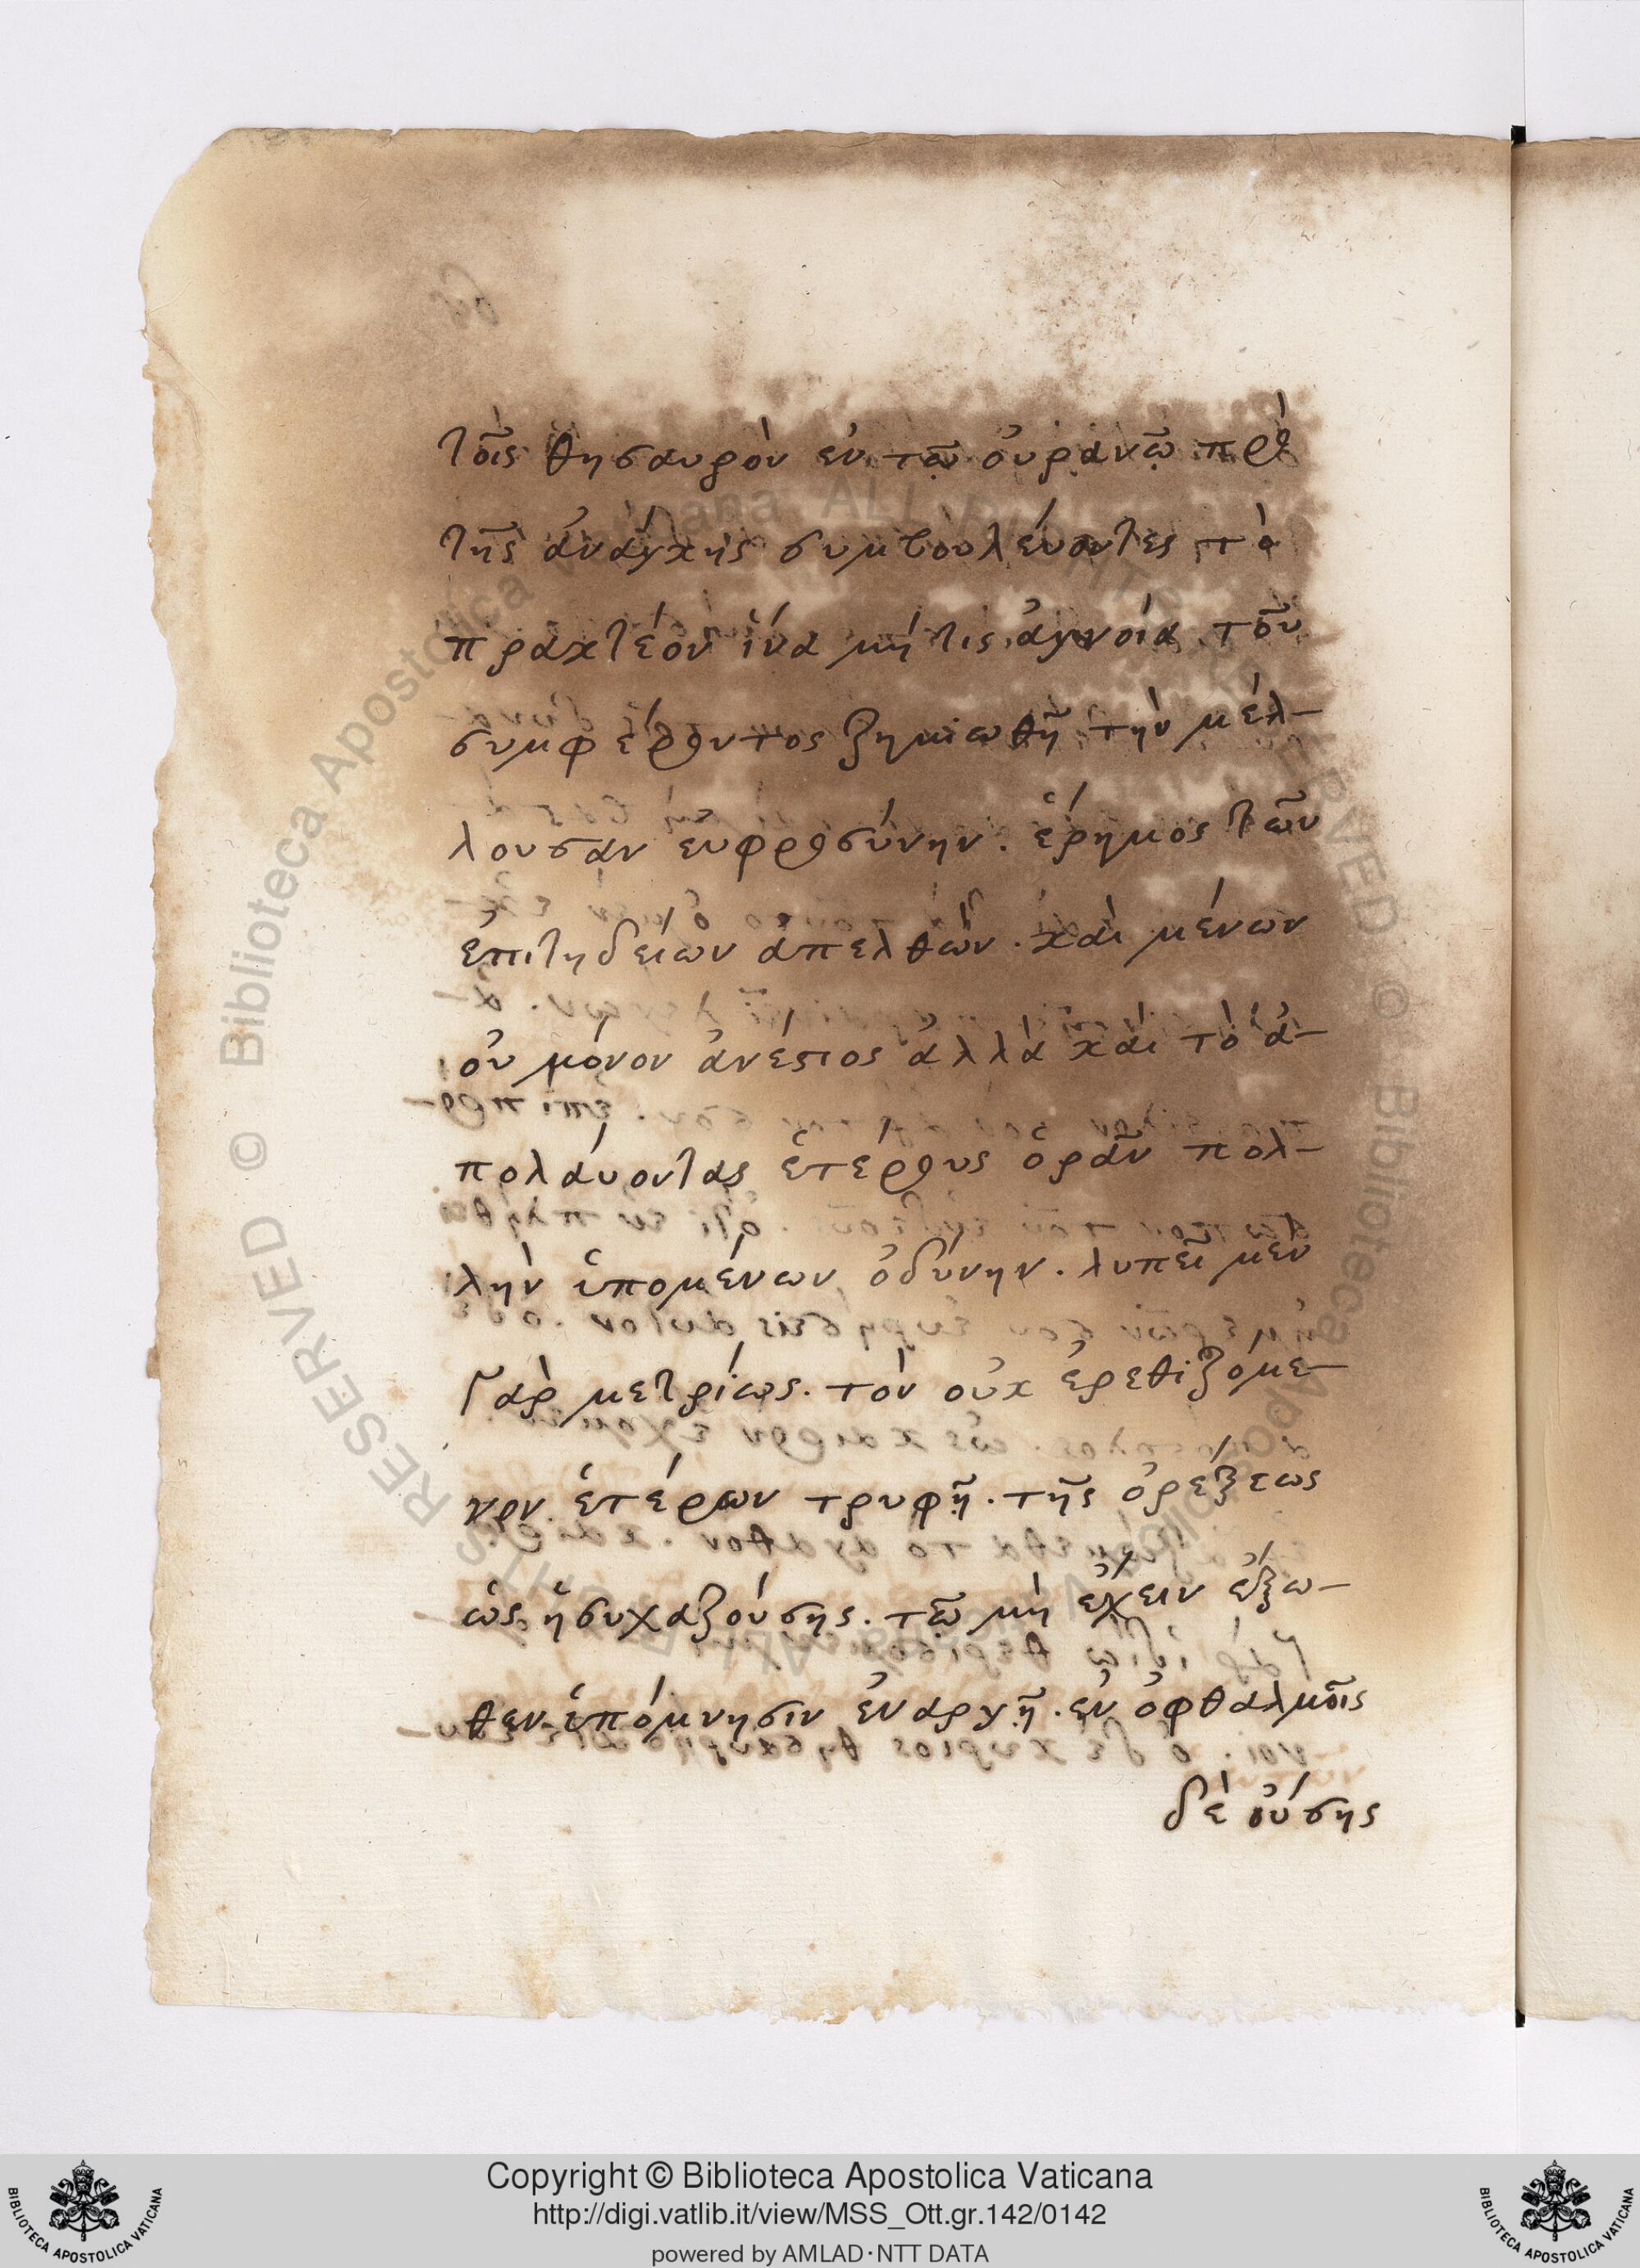 τοῖς θησαυρὸν ἐν τῷ οὐρανῷ πρὸ
τῆς ἀνάγκης συμβουλέυοντες τὸ
πρακτέον ἵνα μή τις ἀγνοία τοῦ
συμφέροντος ζημιωθῆ τὴν μέλ-
λουσαν ευφροσύνην. ἔρημος τῶν
ἐπιτηδείων ἀπελθὼν. καὶ μένων
οὐ μόνον ἀνέστιος ἀλλὰ καὶ τὸ ἀ-
πολάυοντας ἑτέρους ὁρᾶν πολ-
λὴν ὑπομένων ὀδύνην. λυπεῖ μὲν
γὰρ μετρίως. τὸν οὐκ ἐρεθιζόμε-
νον ἑτέρων τρυφῆ. τῆς ὀρέξεως
ὡς ἡσυχαζούσης. τῷ μὴ ἔχειν ἔξω-
θεν ὑπόμνησιν ἐναργῆ. ἐν ὀφθαλμοῖς
δὲ οὔσης
© Biblioteca Apostolica Vaticana ALL RIGHTS RESERVED
Copyright © Biblioteca Apostolica Vaticana
http://digi.vatlib.it/view/MSS_Ott.gr.142/0142
powered by AMLAD·NTT DATA
BIBLIOTECA APOSTOLICA VATICANA
BIBLIOTECA APOSTOLICA VATICANA